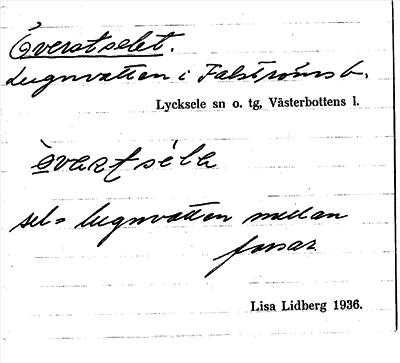 Överatselet.
Lugnvatten i Falströms b.
Lycksele sn o. tg, Västerbottens l.
òvaʀt séla
sel = lugnvatten medan
forsar
Lisa Lidberg 1936.